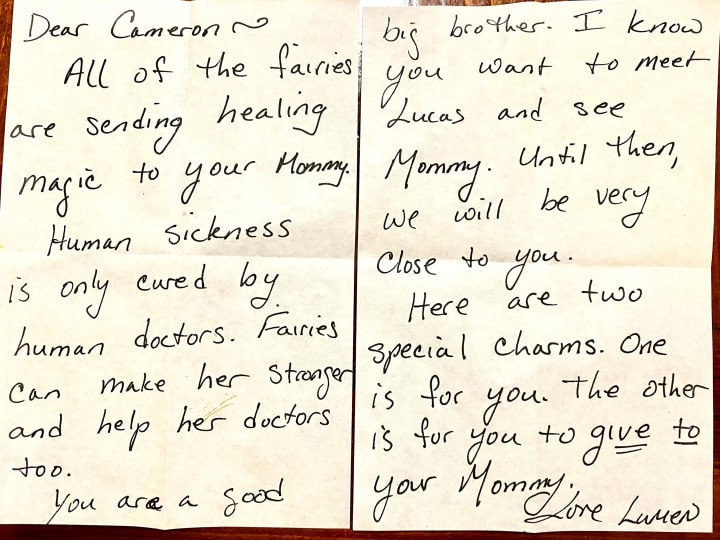 Dear Cameron ~
All of the fairies
are sending healing
magic to your Mommy.
Human sickness
is only cured by
human doctors. Fairies
can make her stronger
and help her doctors
too.
You are a good
big brother. I know
you want to meet
Lucas and see
Mommy. Until then,
we will be very
close to you.
Here are two
special charms. One
is for you. The other
is for you to give to
your Mommy.
Love Lumen